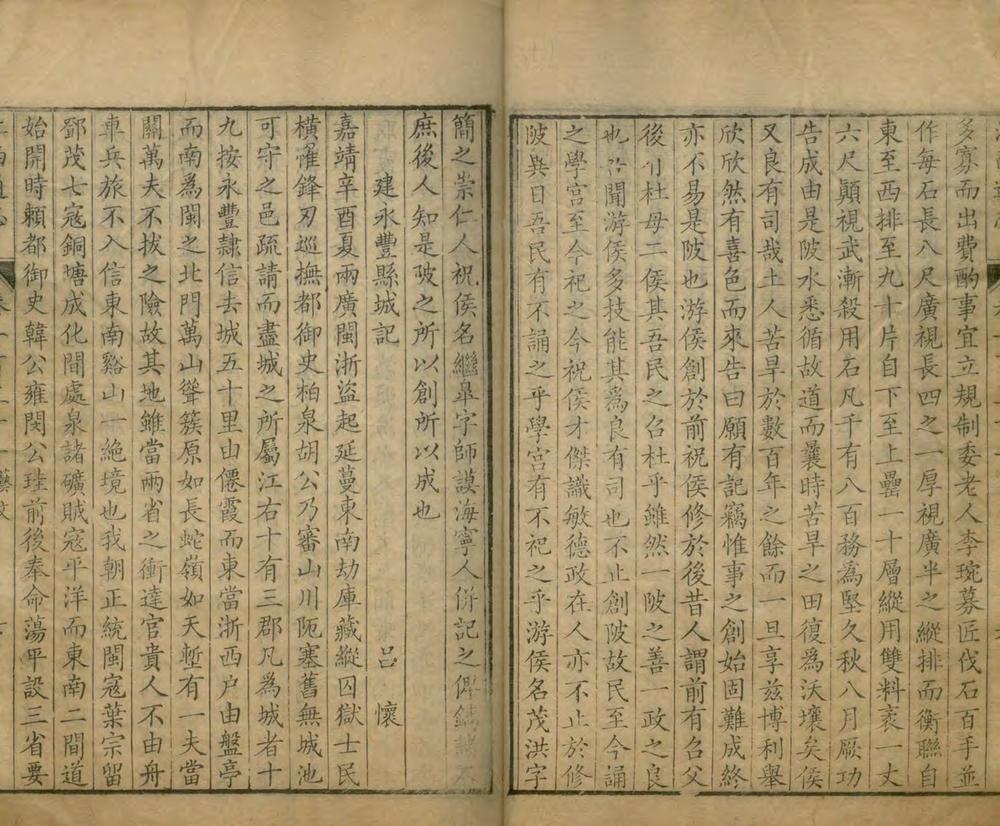 多寡而出費酌事宜立規制委老人李琬募匠伐石百手並
作每石長八尺廣視長四之一厚視廣半之縱排而衡聯自
東至西排至九十片自下至上壘一十層縱用雙料袤一丈
六尺顛視武漸殺用石凡千有八百務為堅久秋八月厥功
告成由是陂水悉循故道而曩時苦旱之田復為沃壤矣侯
又良有司哉土人苦旱於數百年之餘而一旦享兹博利舉
欣欣然有喜色而來告曰願有記竊惟事之創始固難成終
亦不易是陂也游侯創於前祝侯修於後昔人謂前有召父
後有杜母二侯其吾民之召杜乎雖然一陂之善一政之良
也吾聞游侯多技能其為良有司也不止創陂故民至今誦
之學宮至今祀之今祝侯才傑識敏德政在人亦不止於修
陂異日吾民有不誦之乎學宮有不祀之乎游侯名茂洪字
簡之崇仁人祝侯名繼皐字師謨海寧人併記之俾鐫諸
庶後人知是陂之所以創所以成也
建永豐縣城記 呂懷
嘉靖辛酉夏兩廣閩浙盜起延蔓東南劫庫藏縱囚獄士民
橫罹鋒刃巡撫都御史柏泉胡公乃審山川阨塞舊無城池
可守之邑疏請而盡城之所屬江右十有三郡凡為城者十
九按永豐隸信去城五十里由僊霞而東當浙西户由盤亭
而南為閩之北門萬山聳簇原如長蛇嶺如天塹有一夫當
關萬夫不拔之險故其地雖當兩省之衝達官貴人不由舟
車兵旅不入信東南谿山一絕境也我朝正統閩寇葉宗留
鄧茂七寇銅塘成化間處泉諸礦賊寇平洋而東南二間道
始開時賴都御史韓公雍閔公珪前後奉命蕩平設三省要